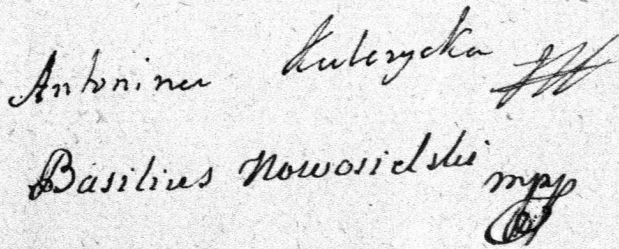 Antonina Kulczycka
Basilius Nowosielski mpp